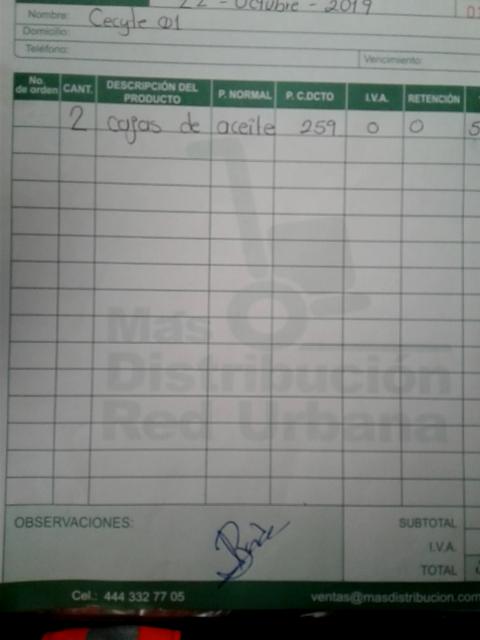 22 - Octubre - 2019
Nombre: Cecyte 01
Domicilio:
Teléfono:
Vencimiento:
No. de orden CANT. DESCRIPCIÓN DEL PRODUCTO P. NORMAL P. C.DCTO I.V.A. RETENCIÓN
2 cajas de aceite 259 0 0 5
Más
Distribución
Red Urbana
OBSERVACIONES:
SUBTOTAL
I.V.A.
TOTAL
Cel.: 444 332 77 05 ventas@masdistribucion.com